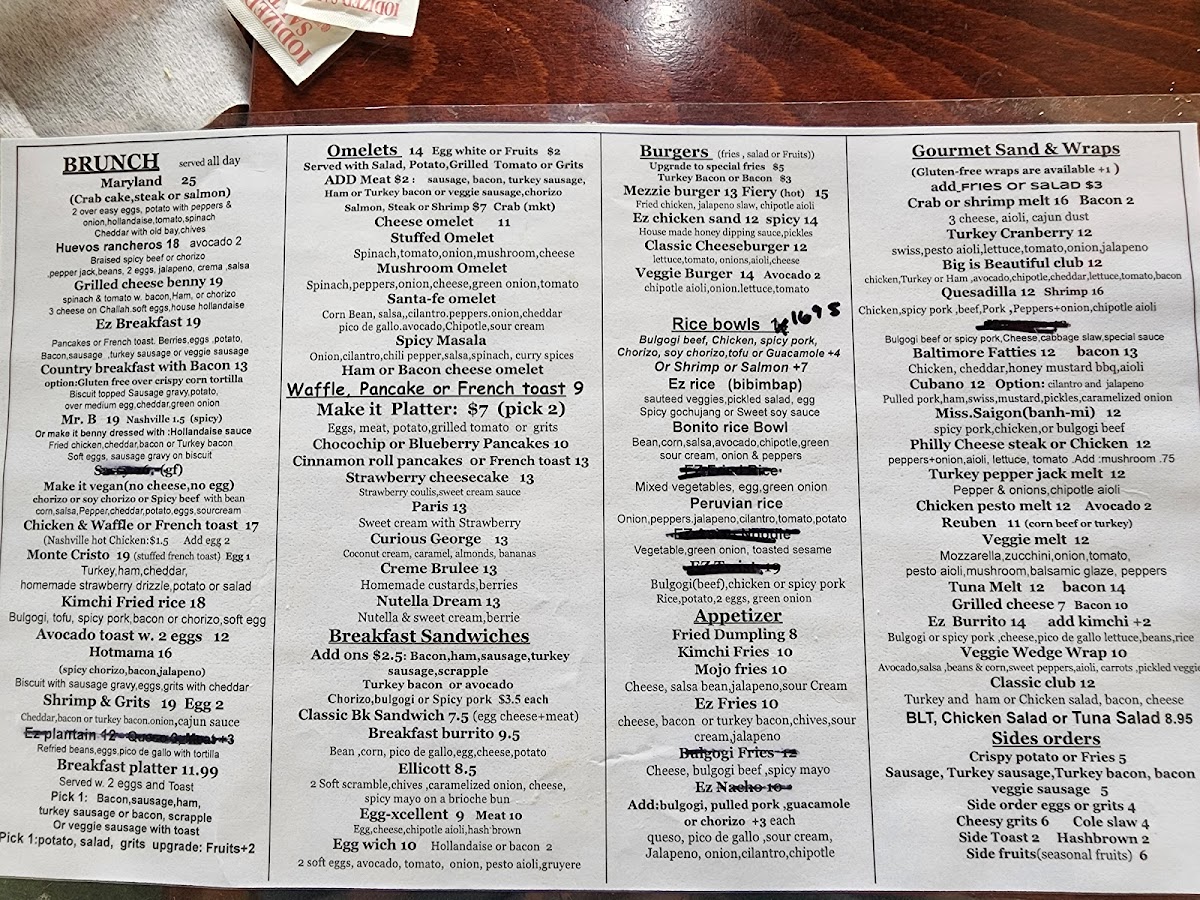 IODIZED
SALT
IODIZED SA
BRUNCH served all day
Maryland 25
(Crab cake,steak or salmon)
2 over easy eggs, potato with peppers &
onion,hollandaise,tomato,spinach
Cheddar with old bay,chives
Huevos rancheros 18 avocado 2
Braised spicy beef or chorizo
,pepper jack,beans, 2 eggs, jalapeno, crema ,salsa
Grilled cheese benny 19
spinach & tomato w. bacon,Ham, or chorizo
3 cheese on Challah.soft eggs,house hollandaise
Ez Breakfast 19
Pancakes or French toast. Berries,eggs ,potato,
Bacon,sausage ,turkey sausage or veggie sausage
Country breakfast with Bacon 13
option:Gluten free over crispy corn tortilla
Biscuit topped Sausage gravy,potato,
over medium egg,cheddar,green onion
Mr. B 19 Nashville 1.5 (spicy)
Or make it benny dressed with :Hollandaise sauce
Fried chicken,cheddar,bacon or Turkey bacon
Soft eggs, sausage gravy on biscuit
(gf)
Make it vegan(no cheese,no egg)
chorizo or soy chorizo or Spicy beef with bean
corn,salsa,Pepper,cheddar,potato,eggs,sourcream
Chicken & Waffle or French toast 17
(Nashville hot Chicken:$1.5 Add egg 2
Monte Cristo 19 (stuffed french toast) Egg 1
Turkey,ham,cheddar,
homemade strawberry drizzle,potato or salad
Kimchi Fried rice 18
Bulgogi, tofu, spicy pork,bacon or chorizo,soft egg
Avocado toast w. 2 eggs 12
Hotmama 16
(spicy chorizo,bacon,jalapeno)
Biscuit with sausage gravy,eggs,grits with cheddar
Shrimp & Grits 19 Egg 2
Cheddar,bacon or turkey bacon.onion,cajun sauce
Ez plantain 12 Queso 2,Meat +3
Refried beans,eggs,pico de gallo with tortilla
Breakfast platter 11.99
Served w. 2 eggs and Toast
Pick 1: Bacon,sausage,ham,
turkey sausage or bacon, scrapple
Or veggie sausage with toast
Pick 1:potato, salad, grits upgrade: Fruits+2
Omelets 14 Egg white or Fruits $2
Served with Salad, Potato,Grilled Tomato or Grits
ADD Meat $2 : sausage, bacon, turkey sausage,
Ham or Turkey bacon or veggie sausage,chorizo
Salmon, Steak or Shrimp $7 Crab (mkt)
Cheese omelet 11
Stuffed Omelet
Spinach,tomato,onion,mushroom,cheese
Mushroom Omelet
Spinach,peppers,onion,cheese,green onion,tomato
Santa-fe omelet
Corn Bean, salsa,,cilantro.peppers.onion,cheddar
pico de gallo.avocado,Chipotle,sour cream
Spicy Masala
Onion,cilantro,chili pepper,salsa,spinach, curry spices
Ham or Bacon cheese omelet
Waffle, Pancake or French toast 9
Make it Platter: $7 (pick 2)
Eggs, meat, potato,grilled tomato or grits
Chocochip or Blueberry Pancakes 10
Cinnamon roll pancakes or French toast 13
Strawberry cheesecake 13
Strawberry coulis,sweet cream sauce
Paris 13
Sweet cream with Strawberry
Curious George 13
Coconut cream, caramel, almonds, bananas
Creme Brulee 13
Homemade custards,berries
Nutella Dream 13
Nutella & sweet cream,berrie
Breakfast Sandwiches
Add ons $2.5: Bacon,ham,sausage,turkey
sausage,scrapple
Turkey bacon or avocado
Chorizo,bulgogi or Spicy pork $3.5 each
Classic Bk Sandwich 7.5 (egg cheese+meat)
Breakfast burrito 9.5
Bean ,corn, pico de gallo,egg,cheese,potato
Ellicott 8.5
2 Soft scramble,chives ,caramelized onion, cheese,
spicy mayo on a brioche bun
Egg-xcellent 9 Meat 10
Egg,cheese,chipotle aioli,hash brown
Egg wich 10 Hollandaise or bacon 2
2 soft eggs, avocado, tomato, onion, pesto aioli,gruyere
Burgers (fries , salad or Fruits))
Upgrade to special fries $5
Turkey Bacon or Bacon $3
Mezzie burger 13 Fiery (hot) 15
Fried chicken, jalapeno slaw, chipotle aioli
Ez chicken sand 12 spicy 14
House made honey dipping sauce,pickles
Classic Cheeseburger 12
lettuce,tomato, onions,aioli,cheese
Veggie Burger 14 Avocado 2
chipotle aioli,onion.lettuce,tomato
Rice bowls 16 95
Bulgogi beef, Chicken, spicy pork,
Chorizo, soy chorizo,tofu or Guacamole +4
Or Shrimp or Salmon +7
Ez rice (bibimbap)
sauteed veggies,pickled salad, egg
Spicy gochujang or Sweet soy sauce
Bonito rice Bowl
Bean,corn,salsa,avocado,chipotle,green
sour cream, onion & peppers
EZ Fried Rice
Mixed vegetables, egg,green onion
Peruvian rice
Onion,peppers.jalapeno,cilantro,tomato,potato
Vegetable,green onion, toasted sesame
Bulgogi(beef),chicken or spicy pork
Rice,potato,2 eggs, green onion
Appetizer
Fried Dumpling 8
Kimchi Fries 10
Mojo fries 10
Cheese, salsa bean,jalapeno,sour Cream
Ez Fries 10
cheese, bacon or turkey bacon,chives,sour
cream,jalapeno
Bulgogi Fries 12
Cheese, bulgogi beef ,spicy mayo
Ez Nacho 10
Add:bulgogi, pulled pork ,guacamole
or chorizo +3 each
queso, pico de gallo ,sour cream,
Jalapeno, onion,cilantro,chipotle
Gourmet Sand & Wraps
(Gluten-free wraps are available +1 )
add FRIES OR SALAD $3
Crab or shrimp melt 16 Bacon 2
3 cheese, aioli, cajun dust
Turkey Cranberry 12
swiss,pesto aioli,lettuce,tomato,onion,jalapeno
Big is Beautiful club 12
chicken,Turkey or Ham ,avocado,chipotle,cheddar,lettuce,tomato,bacon
Quesadilla 12 Shrimp 16
Chicken,spicy pork ,beef,Pork ,Peppers+onion,chipotle aioli
Bulgogi beef or spicy pork,Cheese,cabbage slaw,special sauce
Baltimore Fatties 12 bacon 13
Chicken, cheddar,honey mustard bbq,aioli
Cubano 12 Option: cilantro and jalapeno
Pulled pork,ham,swiss,mustard,pickles,caramelized onion
Miss.Saigon(banh-mi) 12
spicy pork,chicken,or bulgogi beef
Philly Cheese steak or Chicken 12
peppers+onion,aioli, lettuce, tomato .Add :mushroom .75
Turkey pepper jack melt 12
Pepper & onions,chipotle aioli
Chicken pesto melt 12 Avocado 2
Reuben 11 (corn beef or turkey)
Veggie melt 12
Mozzarella,zucchini,onion,tomato,
pesto aioli,mushroom,balsamic glaze, peppers
Tuna Melt 12 bacon 14
Grilled cheese 7 Bacon 10
Ez Burrito 14 add kimchi +2
Bulgogi or spicy pork ,cheese,pico de gallo lettuce,beans,rice
Veggie Wedge Wrap 10
Avocado,salsa ,beans & corn,sweet peppers,aioli, carrots ,pickled veggie
Classic club 12
Turkey and ham or Chicken salad, bacon, cheese
BLT, Chicken Salad or Tuna Salad 8.95
Sides orders
Crispy potato or Fries 5
Sausage, Turkey sausage,Turkey bacon, bacon
veggie sausage 5
Side order eggs or grits 4
Cheesy grits 6 Cole slaw 4
Side Toast 2 Hashbrown 2
Side fruits(seasonal fruits) 6